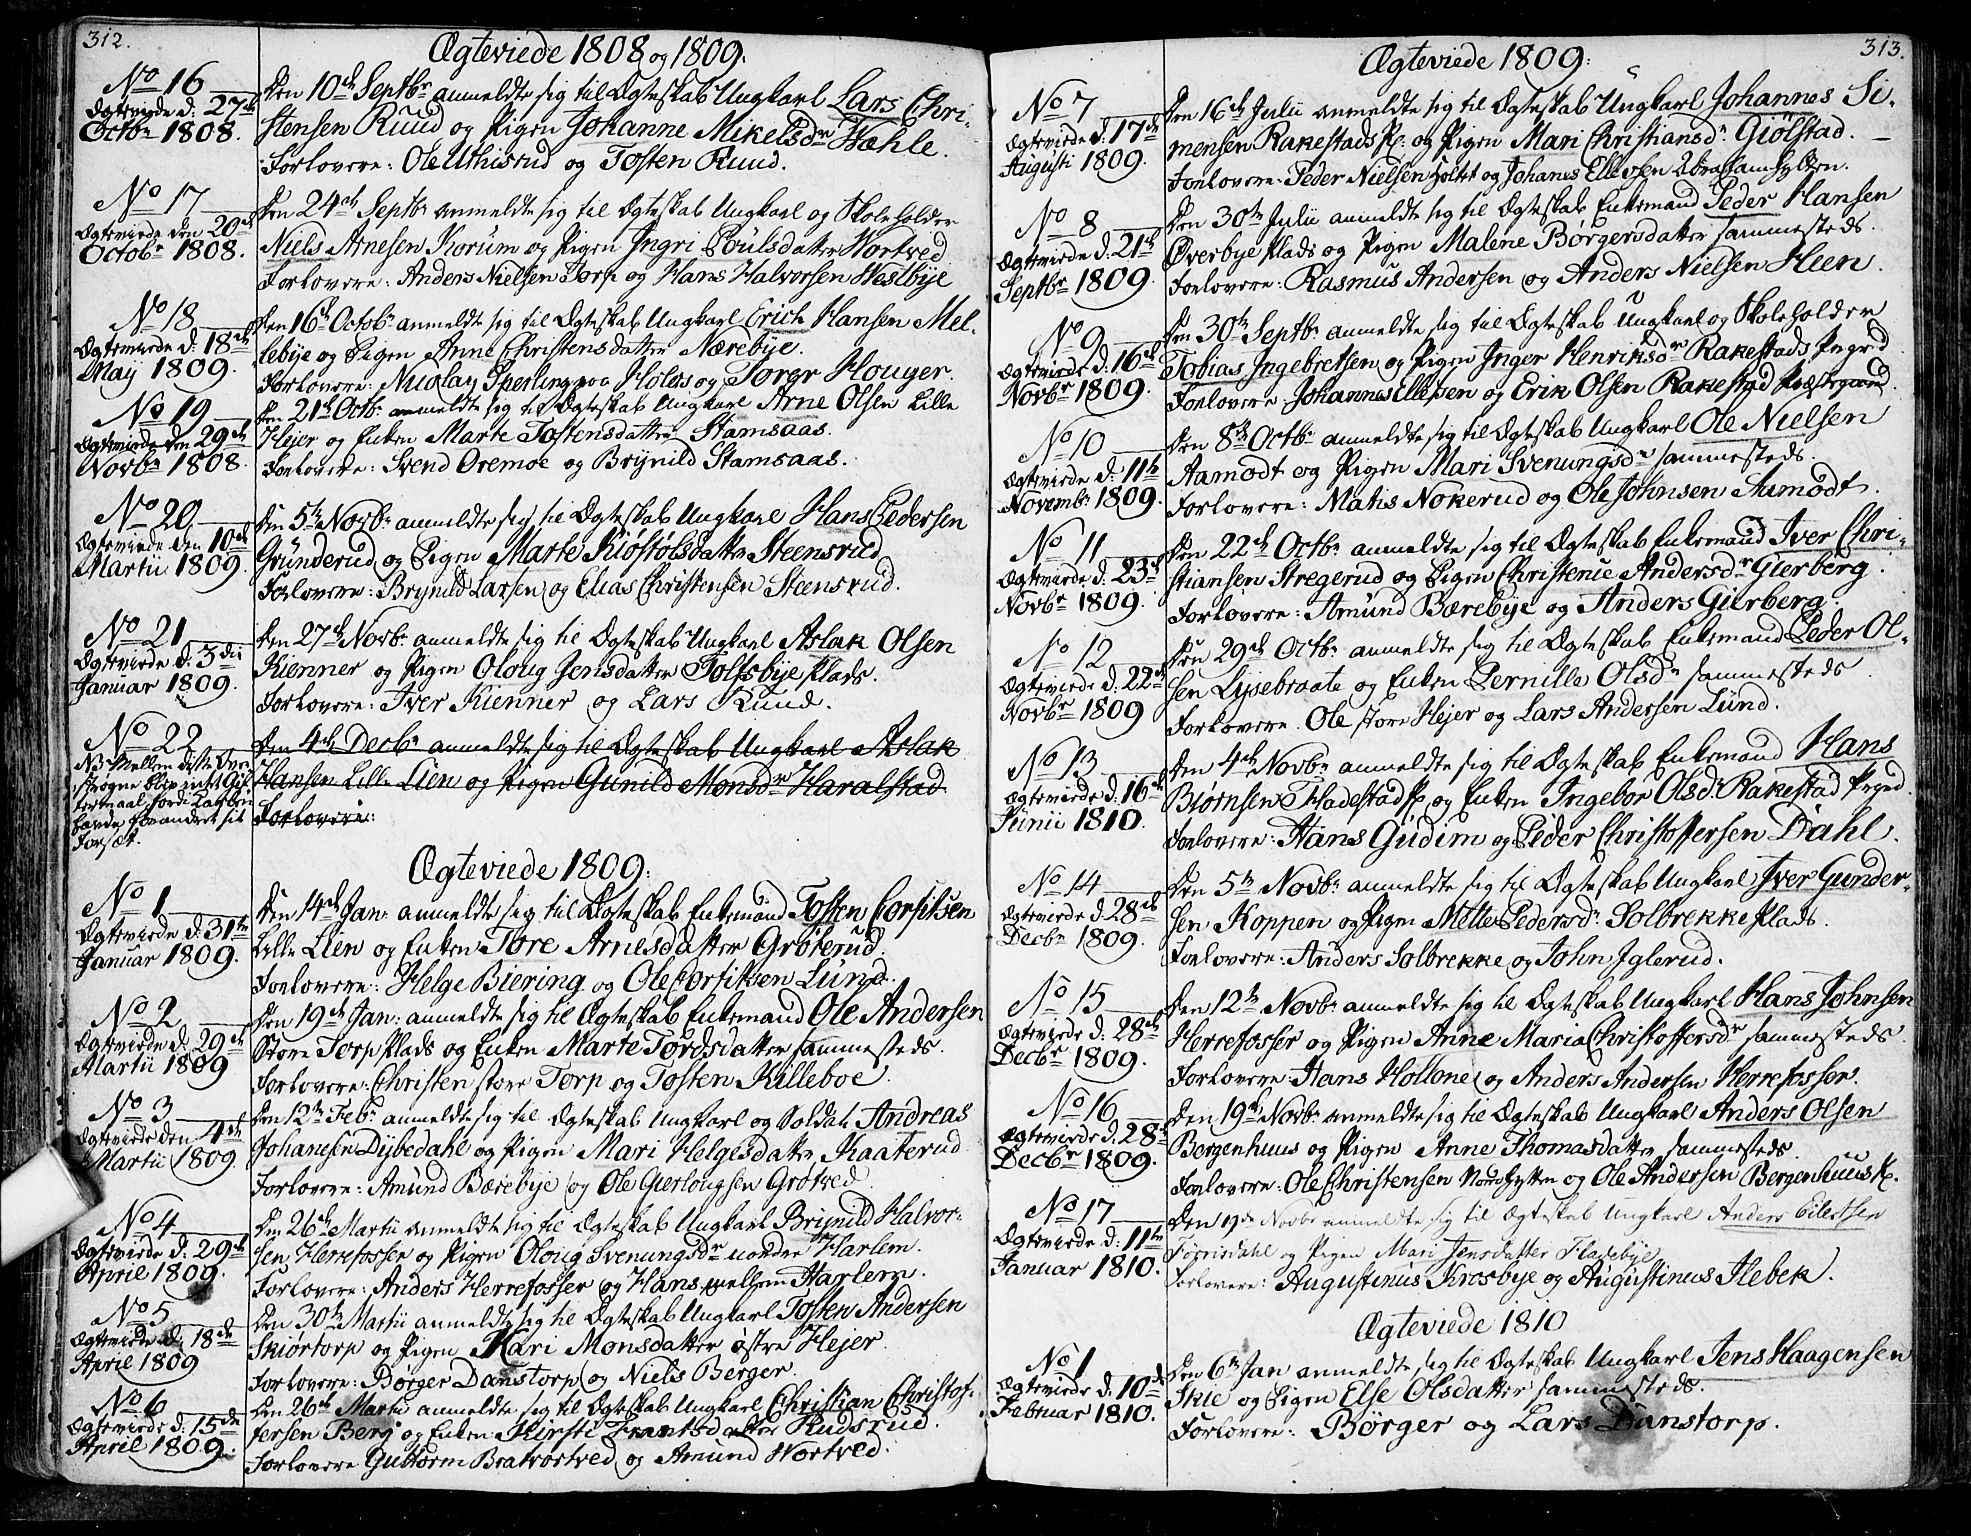 312.
Ægteviede 1808 og 1809.
No 16
Ægteviede d: 27de
Octbr 1808.
Den 10de Septbr anmeldte sig til Ægteskab Ungkarl Lars Chri-
stensen Ruud og Pigen Johanne Mikelsdr Hæhle.
Forlovere: Ole Uthisrud og Tosten Ruud.
No 17
Ægteviede den 20de
Octobr 1808.
Den 24de Septbr anmeldte sig til Ægteskab Ungkarl og Skoleholder
Niels Arnesen Korum og Pigen Ingri Poulsdatter Hortved
Forlovere: Anders Nielsen Torp og Hans Halvorsen Westbye
No 18
Ægteviede d: 18de
May 1809.
Den 16de Octobr anmeldte sig til Ægteskab Ungkarl Erich Hansen Mel-
lebye og Pigen Anne Christensdatter Nærebye.
Forlovere: Nicolay Sperling paa Holds og Torer Houger.
No 19
Ægteviede den 29de
Novbr 1808.
Den 21de Octbr anmeldte sig til Ægteskab Ungkarl Arne Olsen Lille
Hejer og Enken Marte Tostensdatter Stamsaas.
Forlovere: Svend Oremoe og Brynild Stamsaas.
No 20
Ægteviede den 10de
Martii 1809.
Den 5te Novbr anmeldte sig til Ægteskab Ungkarl Hans Pedersen
Grunderud og Pigen Marte Kiøstølsdatter Steensrud
Forlovere: Brynild Larsen og Elias Christensen Steensrud.
No 21
Ægteviede d: 3die
Januar 1809.
Den 27de Novbr anmeldte sig til Ægteskab Ungkarl Aslak Olsen
Kienner og Pigen Oloug Jensdatter Toltsbye Plads.
Forlovere: Iver Kienner og Lars Ruud.
No 22
NB Mellem dette Over
strøgne blev intet Gif-
termaal fordi Karlen
havde forandret sit
Forsæt.
Den 4de Decbr anmeldte sig til Ægteskab Ungkarl Aslak
Hansen Lille Lien og Pigen Gunild Monsdr Haralstad
Forlovere:
Ægteviede 1809:
No 1
Ægteviede d: 31te
Januar 1809.
Den 14de Jan: anmeldte sig til Ægteskab Enkemand Tosten Corfitsen
Lille Lien og Enken Tore Arnesdatter Grøterud.
Forlovere: Helge Biering og Ole Corfitsen Lund.
No 2
Ægteviede d. 29de
Martii 1809
Den 19de Jan: anmeldte sig til Ægteskab Enkemand Ole Andersen
Store Torp Plads og Enken Marte Tordsdatter sammesteds.
Forlovere: Christen store Torp og Tosten Killeboe.
No 3
Ægteviede den 4de
Martii 1809.
Den 12te Febr anmeldte sig til Ægteskab Ungkarl og Soldat Andreas
Johansen Dybedahl og Pigen Mari Helgesdatter Kaaterud.
Forlovere: Amund Bærebye og Ole Gierlougsen Grøtved.
No 4
Ægteviede d: 29de
April 1809.
Den 26de Martii anmeldte sig til Ægteskab Ungkarl Brynild Halvor-
sen Herrefosser og Pigen Oloug Svenungsdr nordre Harlem.
Forlovere: Anders Herrefosser og Hans mellem Harlem.
No 5
Ægteviede d: 18de
April 1809
Den 30te Martii anmeldte sig til Ægteskab Ungkarl Tosten Andersen
Skiørtorp og Pigen Kari Monsdatter østre Hejer.
Forlovere: Børger Danstorp og Niels Berger.
No 6
Ægteviede d: 15de
April 1809.
Den 26de Martii anmeldte sig til Ægteskab Ungkarl Christian Christof-
fersen Berg og Enken Kirsti Frantsdatter Hudsrud.
Forlovere Guttorm Bratvortved og Amund Wortved.
313.
Ægteviede 1809:
No 7
Ægteviede d: 17de
Augusti 1809.
Den 16de Julii anmeldte sig til Ægteskab Ungkarl Johannes Si-
mensen Rakestads Pl: og Pigen Mari Christiansdr Giølstad.
Forlovere: Peder Nielsen Holtet og Johanes Ellevsen Abrahamhytten.
No 8
Ægteviede d: 21de
Septbr 1809.
Den 30te Julii anmeldte sig til Ægteskab Enkemand Peder Hansen
Øverbye Plads og Pigen Malene Børgersdatter sammesteds.
Forlovere: Rasmus Andersen og Anders Nielsen Heen.
No 9
Ægteviede d. 16de
Novbr 1809.
Den 30te Septbr anmeldte sig til Ægteskab Ungkarl og Skoleholder
Tobias Ingebretsen og Pigen Inger Henriksdr Rakestads Prgrd
Forlovere: Johannes Ellefsen og Erik Olsen Rakestad Præstegaard.
No 10
Ægteviede d: 11te
Novembr 1809.
Den 8de Octbr anmeldte sig til Ægteskab Ungkarl Ole Nielsen
Aamodt og Pigen Mari Svenungsdr sammesteds.
Forlovere: Matis Nokerud og Ole Johnsen Aamodt.
No 11
Ægteviede d: 23de
Novbr 1809.
Den 22de Octbr anmeldte sig til Ægteskab Enkemand Iver Chri-
stiansen Stregerud og Pigen Christenie Andersdr Gierberg.
Forlovere: Amund Bærebye og Anders Gierberg.
No 12
Ægteviede d: 22de
Novbr 1809
Den 29de Octbr anmeldte sig til Ægteskab Enkemand Peder Ol-
sen Lysebraate og Enken Pernille Olsdr sammesteds
Forlovere Ole store Hejer og Lars Andersen Lund.
No 13
Ægteviede d: 16de
Junii 1810.
Den 4de Novbr anmeldte sig til Ægteskab Enkemand Hans
Biørnsen Thadestad Pl og Enken Ingebor Olsdr Rakestad Prgrd.
Forlovere: Hans Gudim og Peder Christoffersen Dahl.
No 14
Ægteviede d: 28de
Decbr 1809.
Den 5te Novbr anmeldte sig til Ægteskab Ungkarl Iver Gunder-
sen Koppen og Pigen Mette Pedersdr Solbrekke Plads.
Forlovere: Anders Solbrekke og John Iglerud.
No 15
Ægteviede d: 28de
Decbr 1809.
Den 12te Novbr anmeldte sig til Ægteskab Ungkarl Hans Johnsen
Herrefosser og Pigen Anne Maria Christoffersdr sammesteds.
Forlovere: Hans Hollone og Anders Andersen Herrefosser.
No 16
Ægteviede d. 28de
Decbr 1809.
Den 19de Novbr anmeldte sig til Ægteskab Ungkarl Anders Olsen
Bergenhuus og Pigen Anne Thomasdatter sammesteds.
Forlovere: Ole Christensen Nordhytten og Ole Andersen Bergenhuus Pl.
No 17
Ægteviede d: 11te
Januar 1810.
Den 19de Novbr anmeldte sig til Ægteskab Ungkarl Anders Eilertsen
Tørrisdahl og Pigen Mari Jensdatter Fladebye
Forlovere: Augustinus Krosbye og Augustinus Ilebek.
Ægteviede 1810
No 1
Ægteviede d: 10de
Februar 1810.
Den 6te Jan anmeldte sig til Ægteskab Ungkarl Jens Haagensen
Skie og Pigen Else Olsdatter sammesteds.
Forlovere: Børger og Lars Danstorp.